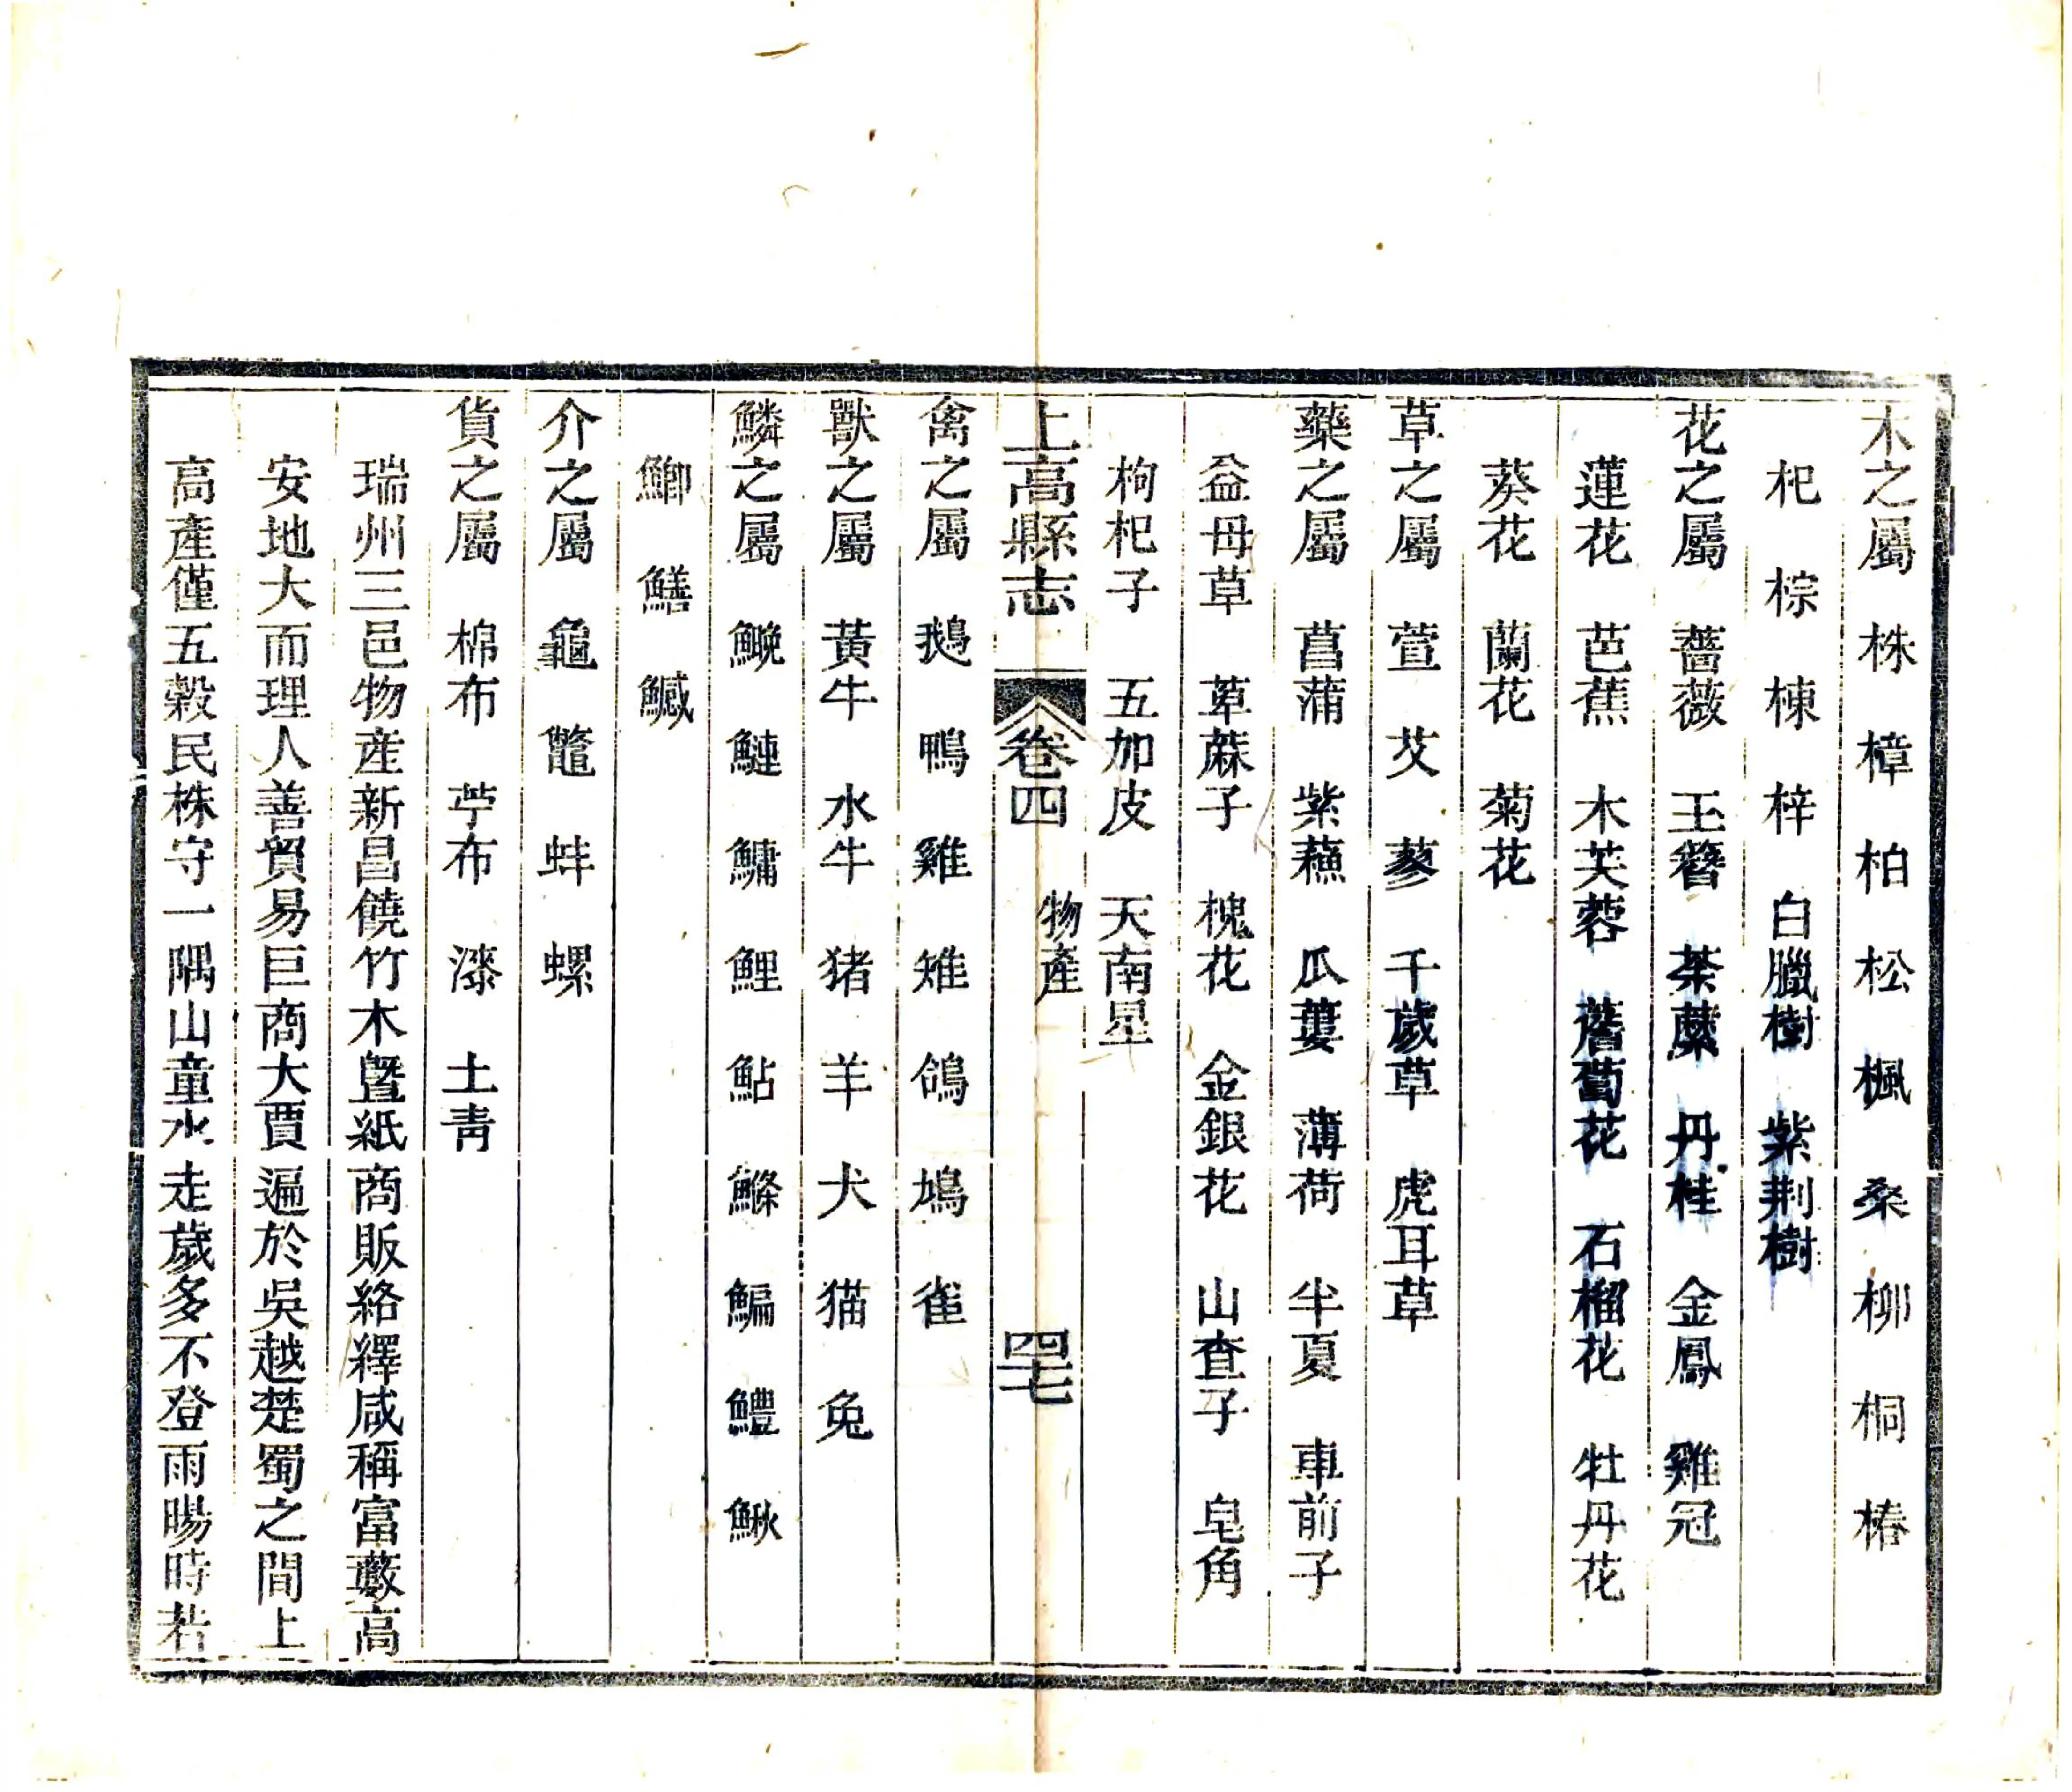 木之屬 株 樟 柏 松 楓 桑 柳 桐 椿
杞 棕 楝 梓 白臘樹 紫荆樹
花之屬 薔薇 玉簪 荼䕷 丹桂 金鳳 雞冠
蓮花 芭蕉 木芙蓉 薝蔔花 石榴花 牡丹花
葵花 蘭花 菊花
草之屬 萱 艾 蓼 千歲草 虎耳草
藥之屬 菖蒲 紫蘓 瓜蔞 薄荷 半夏 車前子
益母草 萆蔴子 槐花 金銀花 山查子 皂角
枸杞子 五加皮 天南星
上高縣志 卷四 物產 四七
禽之屬 鵝 鴨 雞 雉 鴿 鳩 雀
獸之屬 黃牛 水牛 猪 羊 犬 猫 兔
鱗之屬 鯇 鰱 鱅 鯉 鮎 鰷 鯿 鱧 鰍
鯽 鱔 鰔
介之屬 龜 鼈 蚌 螺
貨之屬 棉布 苧布 漆 土青
瑞州三邑物產新昌饒竹木曁紙商販絡繹咸稱富藪高
安地大而理人善貿易巨商大賈遍於吳越楚蜀之間上
高產僅五穀民株守一隅山童水走歲多不登雨暘時若